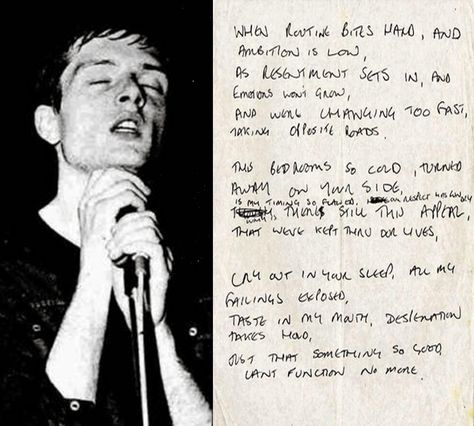 WHEN ROUTINE BITES HARD, AND
AMBITION IS LOW,
AS RESENTMENT SETS IN, AND
EMOTIONS WON'T GROW,
AND WERE CHANGING TOO FAST,
TAKING OPPOSITE ROADS.
THIS BEDROOMS SO COLD, TURNED
AWAY ON YOUR SIDE,
IS MY TIMING SO FLAWED, OUR RESPECT
THERES STILL THIS APPEAL,
THAT WE'VE KEPT THRU OUR LIVES,
CRY OUT IN YOUR SLEEP, ALL MY
FAILINGS EXPOSED,
TASTE IN MY MOUTH, DESPERATION
TAKES HOLD,
JUST THAT SOMETHING SO GOOD,
CANT FUNCTION NO MORE.